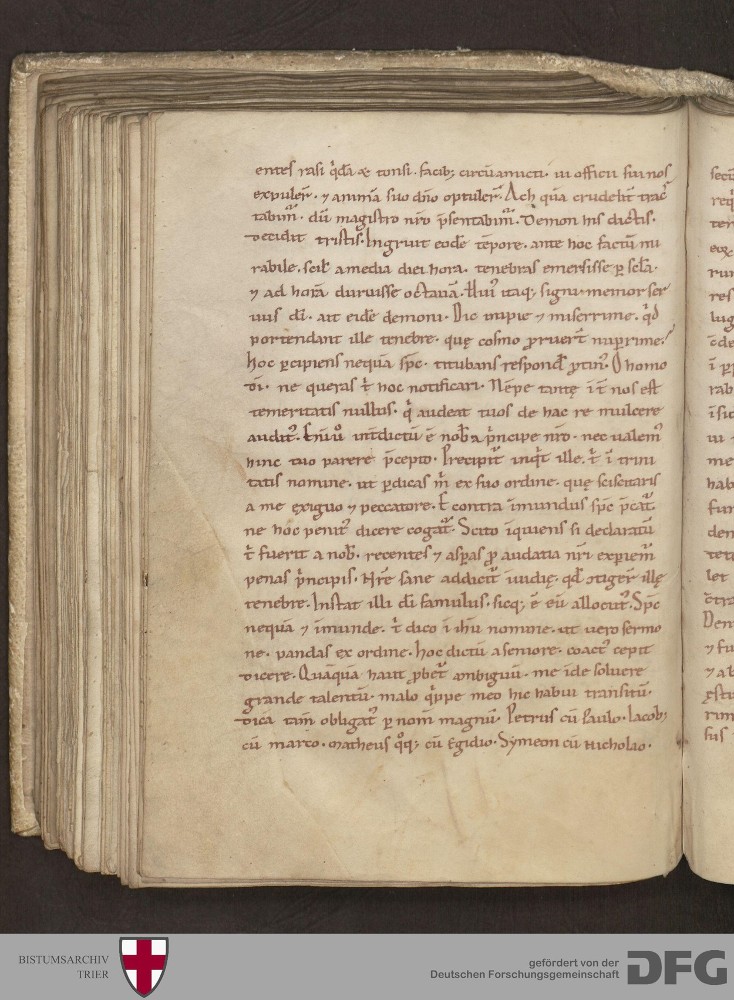 entes rasi q̇dā ac tonsi. facib; circūamicti. ui officii sui nos
expuler̄. ⁊ animā suo dn̄o optuler̄. Ach q̄m crudelit̄ trac
tabim̄. dū magistro nr̄o p̄sentabim̄. Demon his dictis.
Decidit tristis. Ingruit eodē tēpore. ante hoc factū mi
rabile. scilic̄ a media diei hora. tenebras emersisse ꝑ scl̄a.
⁊ ad horā durauisse octauā. Hui᾽ itaq; signi memor ser
uus dī. ait eidē demoni. Dic impie ⁊ miserrime. q̇d
portendant ille tenebre. quę cosmo ꝓruer̄t nuprime.
Hoc ꝑcipiens nequā sp̄c. titubans respond̄ ꝓtin᾽. O homo
dī. ne queras t̄ hoc notificari. Nēpe tantę ī t̄ nos est
temeritatis nullus. q̇ audeat tuos de hac re mulcere
audit᾽. intdictū ē nob̄ a ṗncipe nr̄o. nec ualem᾽
hinc tuo parere p̄cepto. Precipit̄ inq̇t ille. t̄ ī trini
tatis nomine. ut ꝑdicas m̄ ex suo ordine. quę sciscitaris
a me exiguo ⁊ peccatore. E contra īmundus sp̄c p̄cat᾽.
ne hoc penit᾽ dicere cogat᾽. Scito īquiens si declaratū
t̄ fuerit a nob̄. recentes ⁊ asꝑas ꝓ audatia nr̄i exꝑiem᾽
penas ṗncipis. Nr̄e sane addicit̄ inuidię. qd̄ ɔtiger̄ illę
tenebre. Instat illi dī famulus. sicq; ē eū allocut᾽. Sp̄c
nequā ⁊ īmunde. t̄ dico ī ih̄u nomine. ut uero sermo
ne. pandas ex ordine. hoc dictū a seniore. coact᾽ cepit
dicere. Quāquā haut p̄bet̄ ambiguū. me īde soluere
grande talentū. malo q̇ppe meo hic habui transitū.
Dicā tam̄ obligat᾽ ꝑ nom̄ magnū. Petrus cū Paulo. Iacob;
cū marco. Matheus q̊q; cū Egidio. Symeon cū Nicholao.
BISTUMSARCHIV
TRIER
gefördert von der
Deutschen Forschungsgemeinschaft
DFG